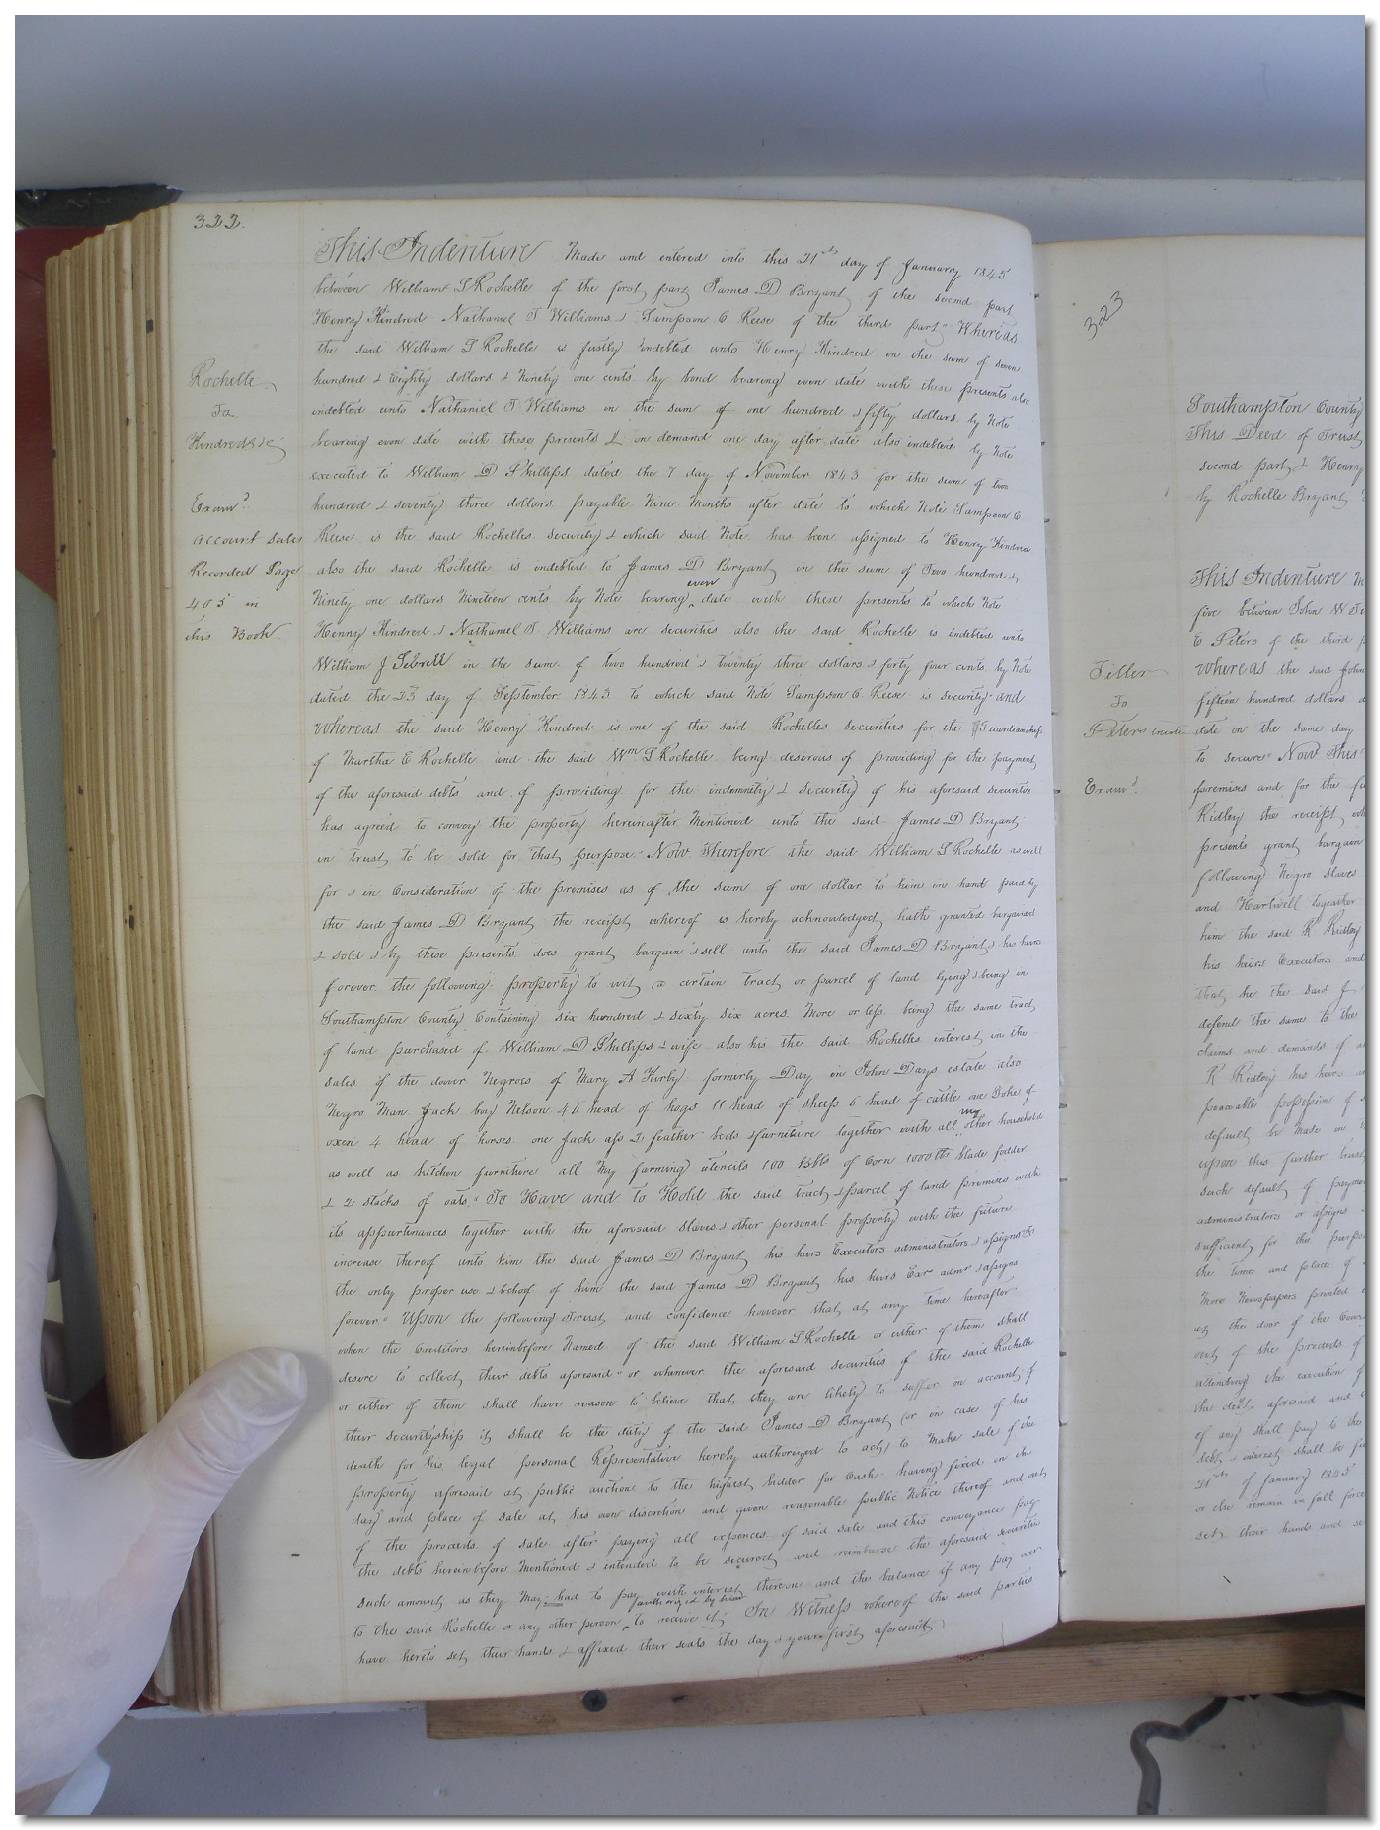 322.
This Indenture Made and entered into this 21st day of January 1845
between William S Rochelle of the first part James D Bryant of the second part
Henry Kindred Nathaniel T Williams & Sampson C Reese of the third part" Whereas
the said William S Rochelle is justly indebted unto Henry Kindred in the sum of seven
hundred & Eighty dollars & Ninety one cents by bond bearing even date with these presents also
indebted unto Nathaniel T Williams in the sum of one hundred & fifty dollars by Note
bearing even date with these presents & on demand one day after date also indebted by Note
executed to William D Phillips dated the 7 day of November 1843 for the sum of two
hundred & seventy three dollars payable Nine Months after date to which Note Sampson C
Reese is the said Rochelles security & which said Note has been assigned to Henry Kindred
also the said Rochelle is indebted to James D Bryant in the sum of Two hundred &
Ninety one dollars Nineteen cents by Note bearing even date with these presents to which Note
Henry Kindred & Nathaniel T Williams are securities also the said Rochelle is indebted unto
William J Sebrell in the sum of two hundred & twenty three dollars & forty four cents by Note
dated the 23 day of September 1843 to which said Note Sampson C Reese is security and
whereas the said Henry Kindred is one of the said Rochelles securities for the Guardianship
of Martha E Rochelle and the said Wm S Rochelle being desirous of providing for the payment
of the aforesaid debts and of providing for the indemnity & security of his aforsaid securities
has agreed to convey the property hereinafter Mentioned unto the said James D Bryant
in trust to be sold for that purpose" Now Therefore the said William S Rochelle as well
for & in Consideration of the premises as of the sum of one dollar to him in hand paid by
the said James D Bryant the receipt whereof is hereby acknowledged hath granted bargained
& sold & by these presents does grant bargain & sell unto the said James D Bryant & his heirs
forever the following property to wit a certain tract or parcel of land lying & being in
Southampton County Containing six hundred & sixty six acres More or less being the same tract
of land purchased of William D Phillips & wife also his the said Rochelles interest in the
sales of the dower Negroes of Mary A Furby formerly Day in John Days estate also
Negro Man Jack boy Nelson 46 head of hogs 11 head of sheep 6 head of cattle one Yoke of
oxen 4 head of horses one Jack ass 2 feather beds & furniture together with all my other household
as well as kitchen furniture all My farming utencils 100 Bbls of Corn 1000 lbs blade fodder
& 2 stacks of oats." To Have and to Hold the said tract & parcel of land premises with
its appurtenances together with the aforesaid slaves & other personal property with the future
increase therof unto him the said James D Bryant his heirs Executors administrators & assigns to
the only proper use & behoof of him the said James D Bryant his heirs Exr admr & assigns
forever" Upon the following Trust and confidence however that at any time hereafter
when the Creditors hereinbefore Named of the said William S Rochelle or either of them shall
desire to collect their debts aforesaid or whenever the aforesaid securities of the said Rochelle
or either of them shall have reason to believe that they are likely to suffer on account of
their securityship it shall be the duty of the said James D Bryant (or in case of his
death for his legal personal Representative hereby authorized to act) to Make sale of the
property aforesaid at public auction to the highest bidder for Cash having fixed on the
day and place of sale at his own discretion and given reasonable public Notice thereof and out
of the proceeds of sale after paying all expences of said sale and this conveyance pay
the debts hereinbefore Mentioned & intended to be secured and reimburse the aforesaid securities
such amounts as they May had to pay with interest thereon and the balance if any pay over
to the said Rochelle or any other person authorized by him to receive it) In Witness whereof the said parties
have hereto set their hands & affixed their seals the day & year first aforesaid
Rochelle
To
Kindred &c
Examd
account sales
Recorded Page
405 in
this Book
323
Southampton County
This Deed of Trust
second part & Henry
by Rochelle Bryant
This Indenture
five between John W
E Peters of the third
Whereas the said John
fifteen hundred dollars
date on the same day
to secure" Now This
premises and for the
Ridley the receipt
presents grant bargain
following Negro slaves
and Hartwell together
him the said R Ridley
his heirs Executors and
that he the said J
defend the same to the
claims and demands of
R Ridley his heirs
peaceable possession of
default be made in
upon this further trust
such default of payment
administrators or assigns
sufficient for the purpose
the time and place of
More Newspapers printed
at the door of the Court
out of the proceeds of
attending the execution of
the debt aforesaid and
if any shall pay to the
debt & interest shall be
21st of January 1845
or else remain in full force
set their hands and
Tiller
To
Peters
Examd.